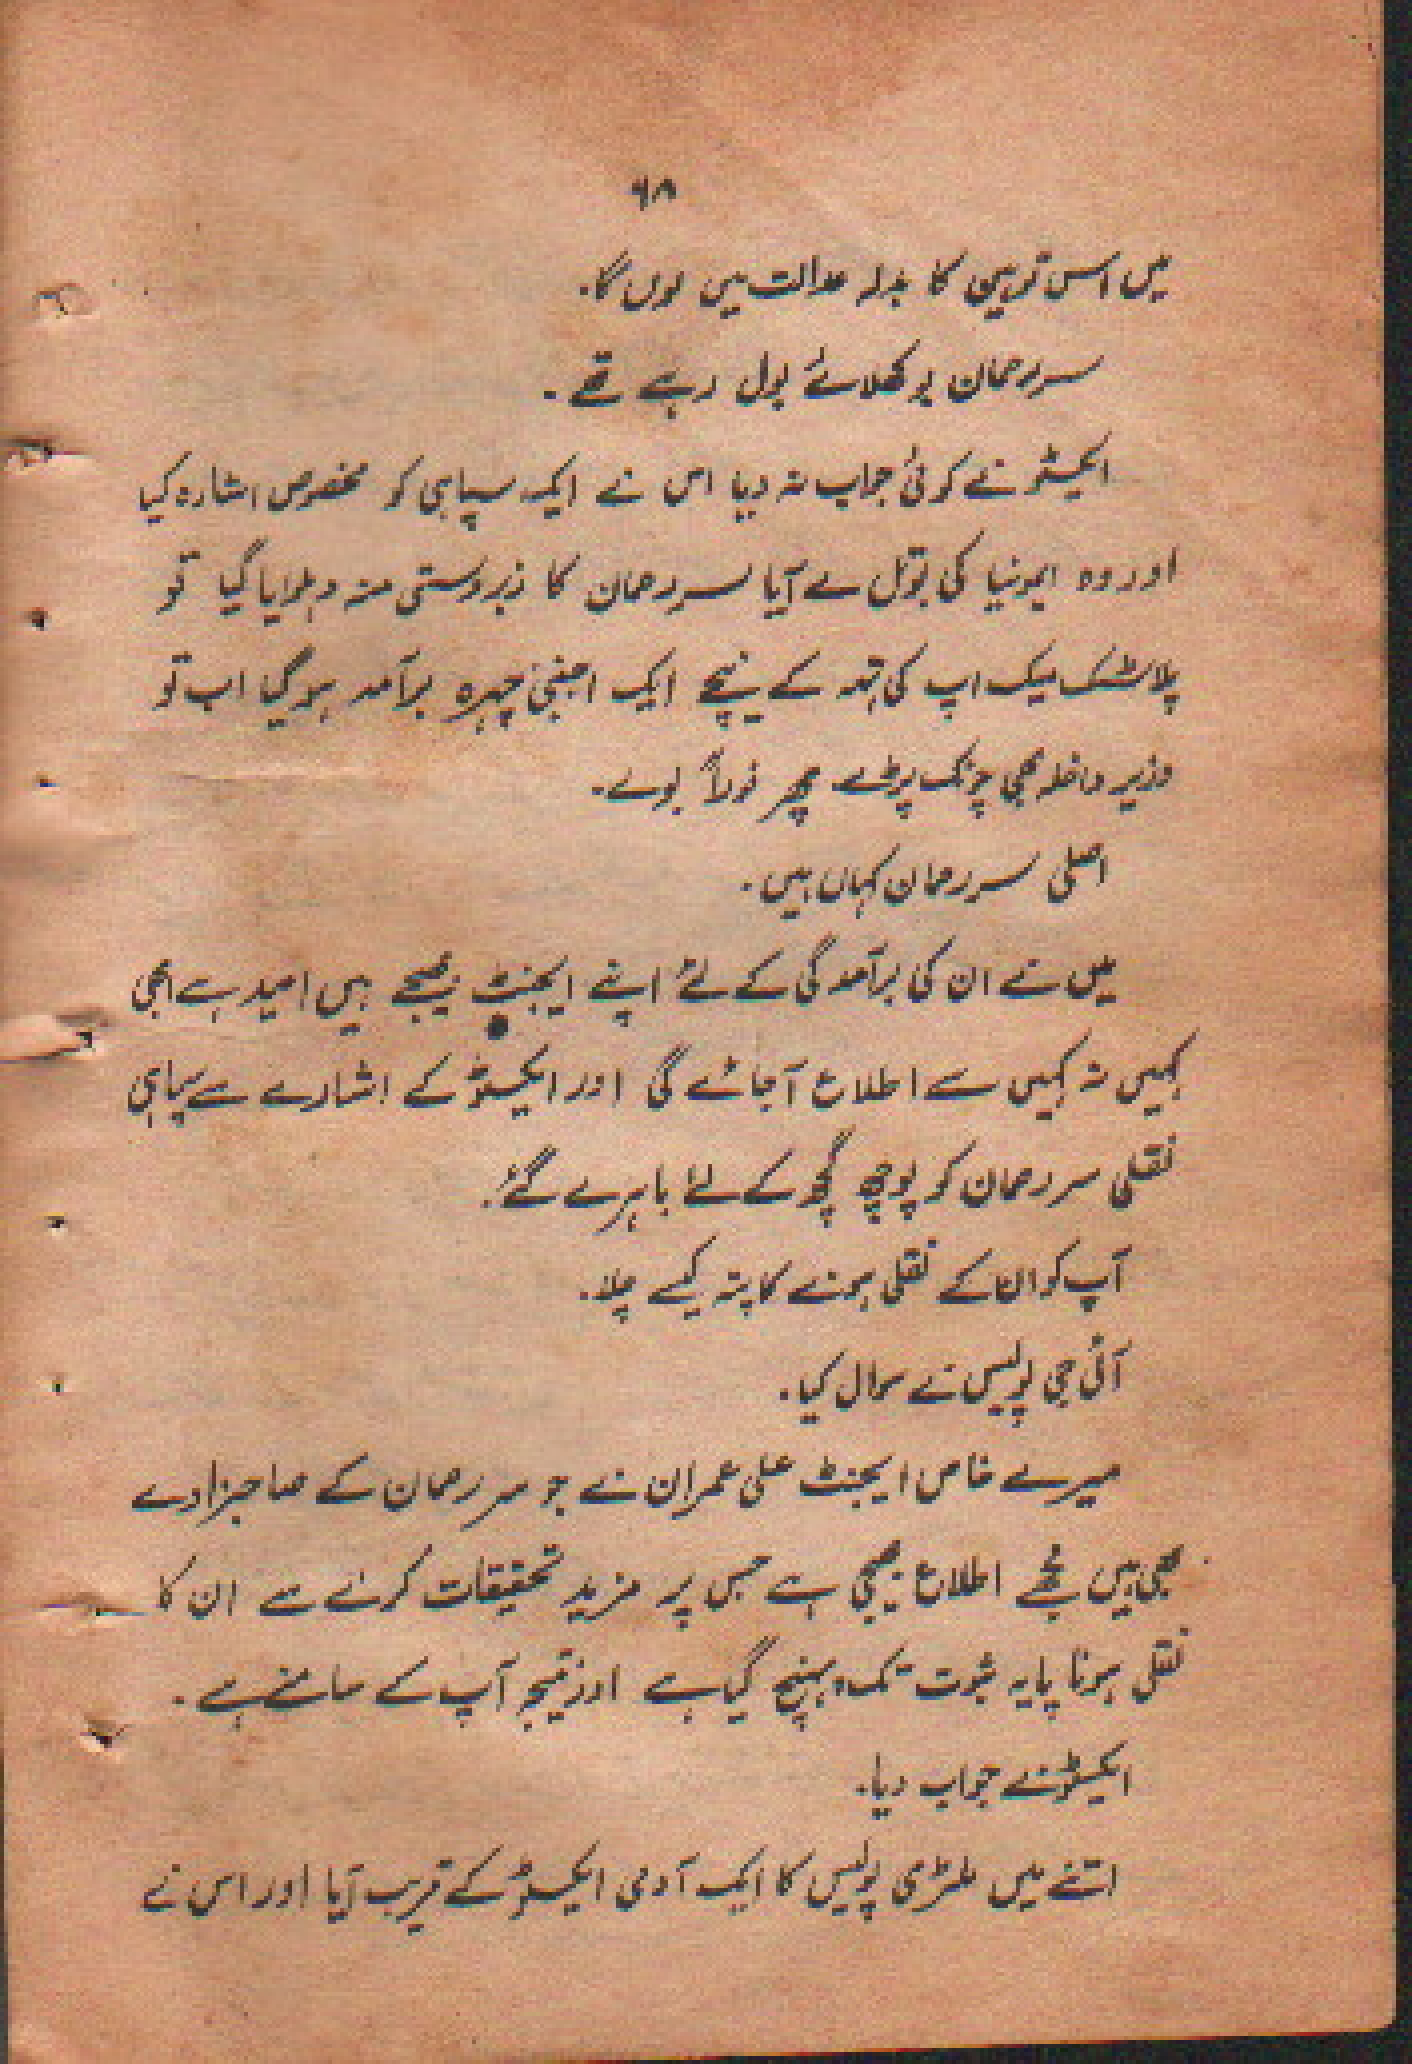 ۶۸
میں اس توہین کا بدلہ عدالت میں لوں گا۔
سر رحمان بوکھلائے بول رہے تھے۔
ایکسٹو نے کوئی جواب نہ دیا اس نے ایک سپاہی کو مخصوص اشارہ کیا
اور وہ ایمونیا کی بوتل لے آیا سر رحمان کا زبردستی منہ دہلوایا گیا تو
پلاسٹک میک اپ کی تہہ کے نیچے ایک اجنبی چہرہ برآمد ہو گیا اب تو
وزیر داخلہ بھی چونک پڑے پھر فوراً بولے۔
اصلی سر رحمان کہاں ہیں۔
میں نے ان کی برآمدگی کے لئے اپنے ایجنٹ بھیجے ہیں امید ہے ابھی
کہیں نہ کہیں سے اطلاع آجائے گی اور ایکسٹو کے اشارے سے سپاہی
نقلی سر رحمان کو پوچھ گچھ کے لئے باہر لے گئے۔
آپ کو ان کے نقلی ہونے کا پتہ کیسے چلا۔
آئی جی پولیس نے سوال کیا۔
میرے خاص ایجنٹ علی عمران نے جو سر رحمان کے صاحبزادے
بھی ہیں مجھے اطلاع بھیجی ہے جس پر مزید تحقیقات کرنے سے ان کا
نقلی ہونا پایہ ثبوت تک پہنچ گیا ہے اور نتیجہ آپ کے سامنے ہے۔
ایکسٹو نے جواب دیا۔
اتنے میں ملٹری پولیس کا ایک آدمی ایکسٹو کے قریب آیا اور اس نے